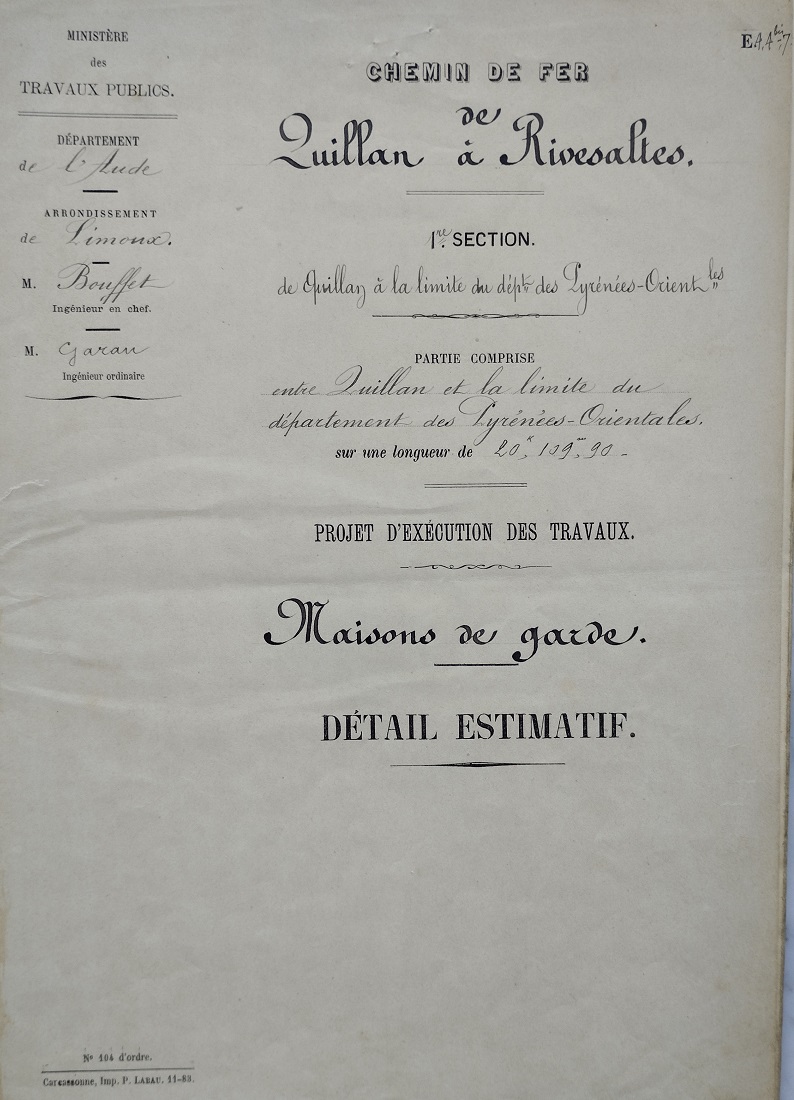 MINISTÈRE
des
TRAVAUX PUBLICS.
DÉPARTEMENT
de l'Aude
ARRONDISSEMENT
de Limoux.
M. Bouffet
Ingénieur en chef.
M. Garau
Ingénieur ordinaire
CHEMIN DE FER
de
Quillan à Rivesaltes.
1re. SECTION.
de Quillan à la limite du dépt. des Pyrénées-Orientles
PARTIE COMPRISE
entre Quillan et la limite du
département des Pyrénées-Orientales.
sur une longueur de 20k, 109m,90-
PROJET D'EXÉCUTION DES TRAVAUX.
Maisons de garde.
DÉTAIL ESTIMATIF.
Nº 104 d'ordre.
Carcassonne, Imp. P. LABAU. 11-83.